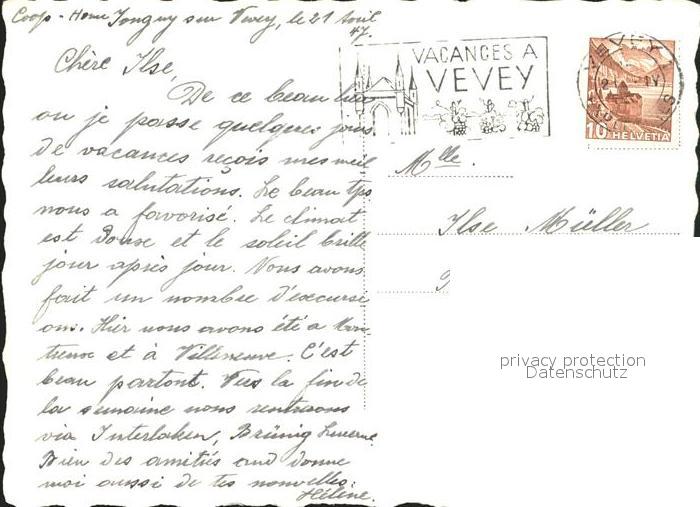 Coop-Home Jongny sur Vevey, le 21 Avril
47.
Chère Ilse,
De ce beau lieu
ou je passe quelques jours
de vacances reçois mes meil
leurs salutations. Le beau tps
nous a favorisé. Le climat
est douse et le soleil brille
jour après jour. Nous avons
fait un nombre d'excursi
ons. Hier nous avons été a Mon
treux et à Villeneuve. C'est
beau partout. Vers la fin de
la semaine nous rentrons
via Interlaken, Brünig Lucerne
Bien des amitiés and donne
moi aussi de tes nouvelles.
Hélène.
VACANCES A
VEVEY
VEVEY
10 HELVETIA
Mlle.
Ilse Müller
privacy protection
Datenschutz